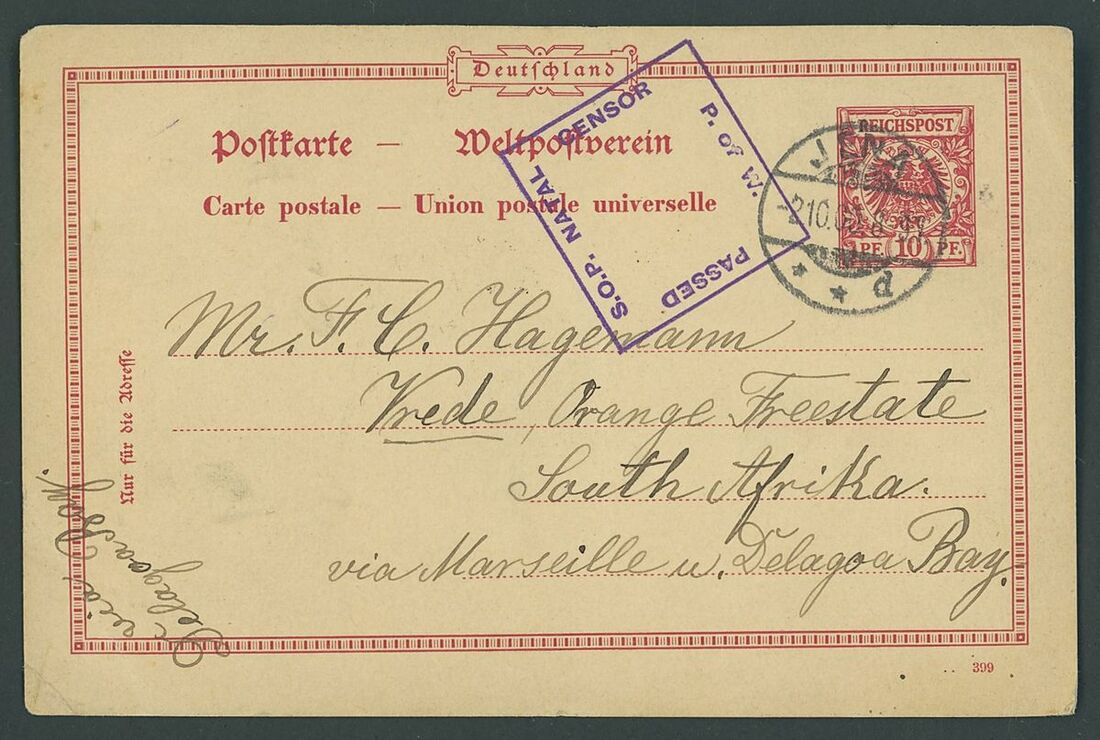 Deutschland
Postkarte — Weltpostverein
Carte postale — Union postale universelle
S.O.P. NATAL CENSOR
P. of W.
PASSED
REICHSPOST
PF. 10 PF.
JENA
d
Mr. F. C. Hagemann
Vrede, Orange Freestate
South Afrika.
via Marseille u. Delagoa Bay.
Nur für die Adresse
via
Delagoa Bay.
399